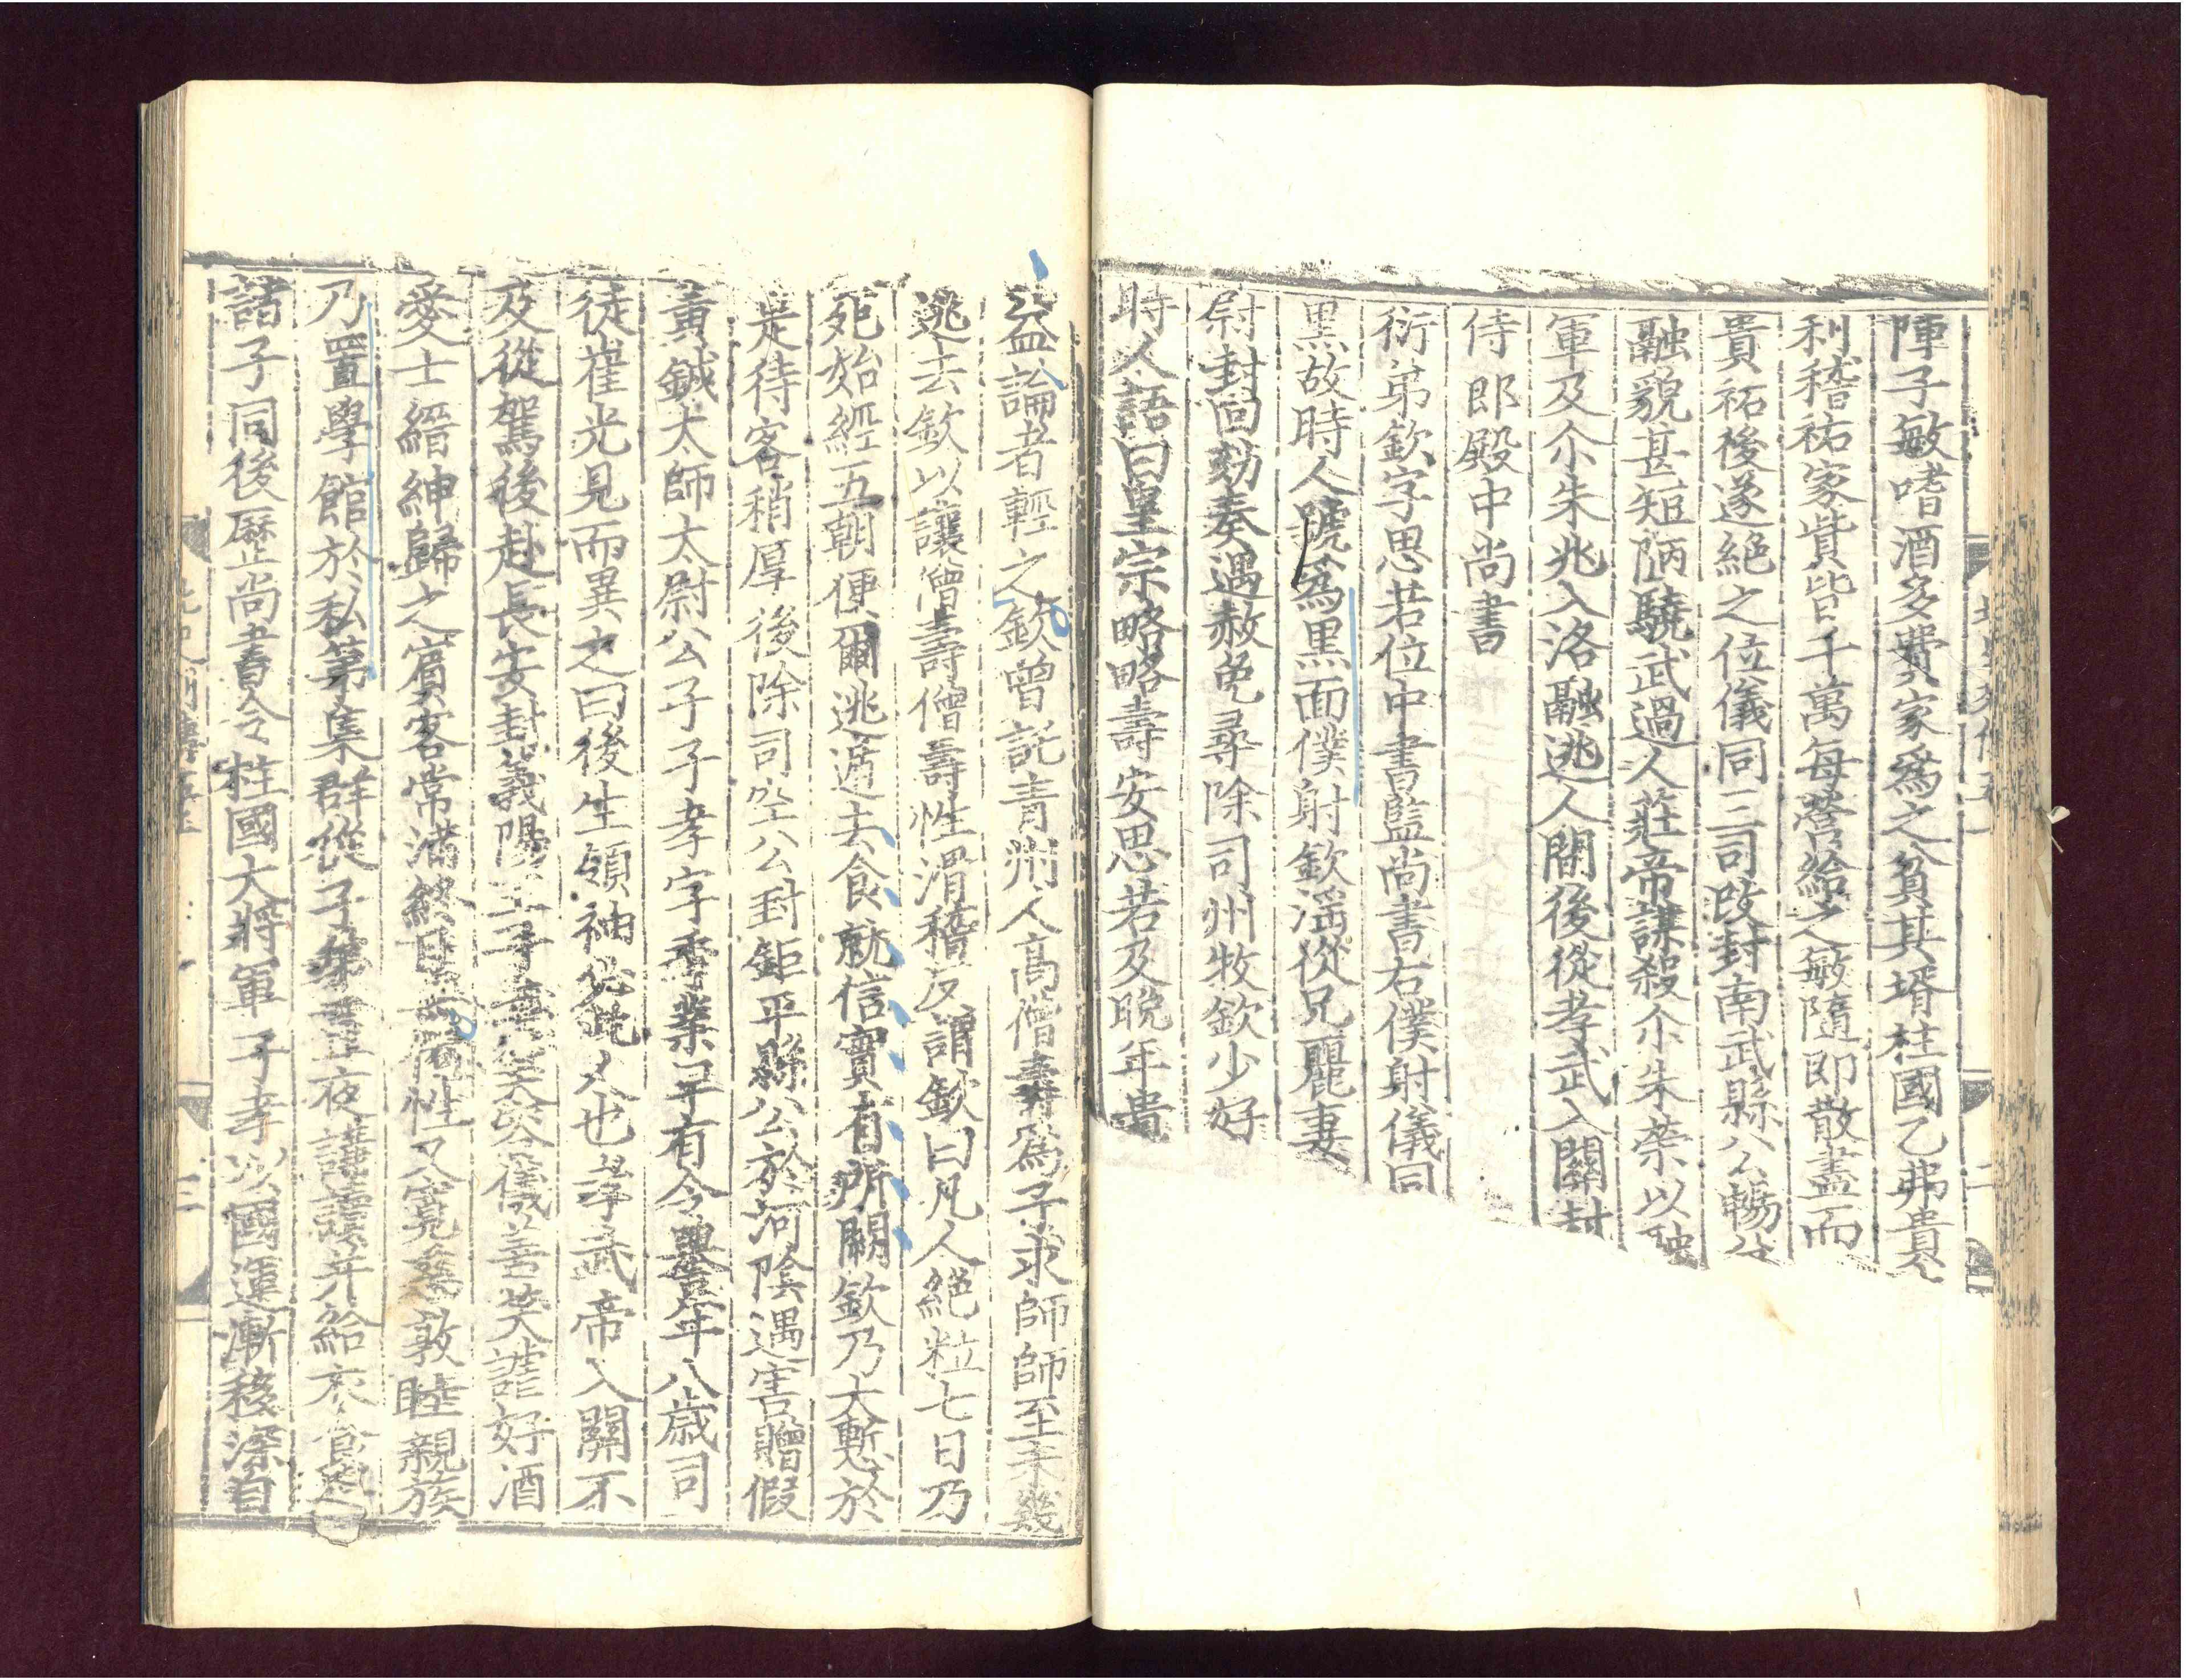 陣子敏嗜酒多費家爲之貧其壻柱國乙弗貴
利稽祐家貲皆千萬每營給之敏隨即散盡而
貴祐後遂絕之位儀同三司改封南武縣公暢
融貌甚短陋驍武過人莊帝謀殺尒朱榮以融
軍及尒朱兆入洛融逃人閒後從孝武入關封
侍郎殿中尚書
衍弟欽字思若位中書監尚書右僕射儀同
黑故時人號爲黑面僕射欽滛從兄麗妻
尉封回劾奏遇赦免尋除司州牧欽少好
時人語曰皇宗略略壽安思若及晚年貴
益論者輕之欽曾託青州人高僧壽爲子求師師至未幾
逃去欽以讓僧壽僧壽性滑稽反謂欽曰凡人絕粒七日乃
死始經五朝便爾逃遁去食就信實有所闕欽乃大慙於
是待客稍厚後除司空公封鉅平縣公於河陰遇害贈假
黃鉞太師太尉公子子孝字季業早有令譽年八歲司
徒崔光見而異之曰後生領袖必此人也孝武帝入關不
及從駕後赴長安封義陽王子孝美容儀善笑謔好酒
愛士縉紳歸之賓客常滿終日無倦性又寬慈敦睦親族
乃置學館於私第集群從子弟晝夜講讀并給衣食與
諸子同後歷尚書令柱國大將軍子孝以國運漸移深自